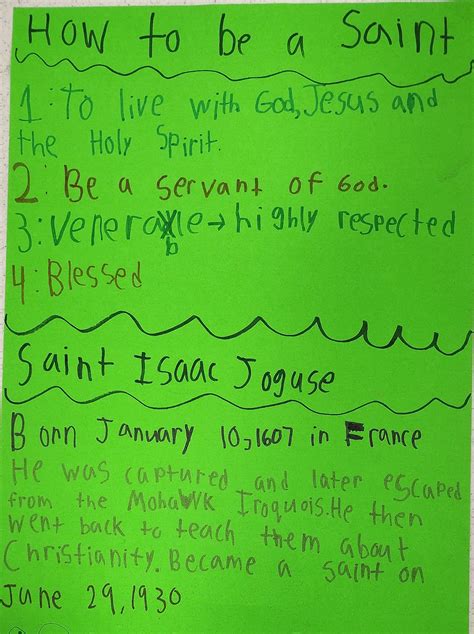 How to be a Saint
1: To live with God, Jesus and
the Holy Spirit.
2: Be a servant of God.
3: venerable → highly respected
4: Blessed
Saint Isaac Joguse
Born January 10, 1607 in France
He was captured and later escaped
from the Mohawk Iroquois. He then
went back to teach them about
Christianity. Became a saint on
June 29, 1930